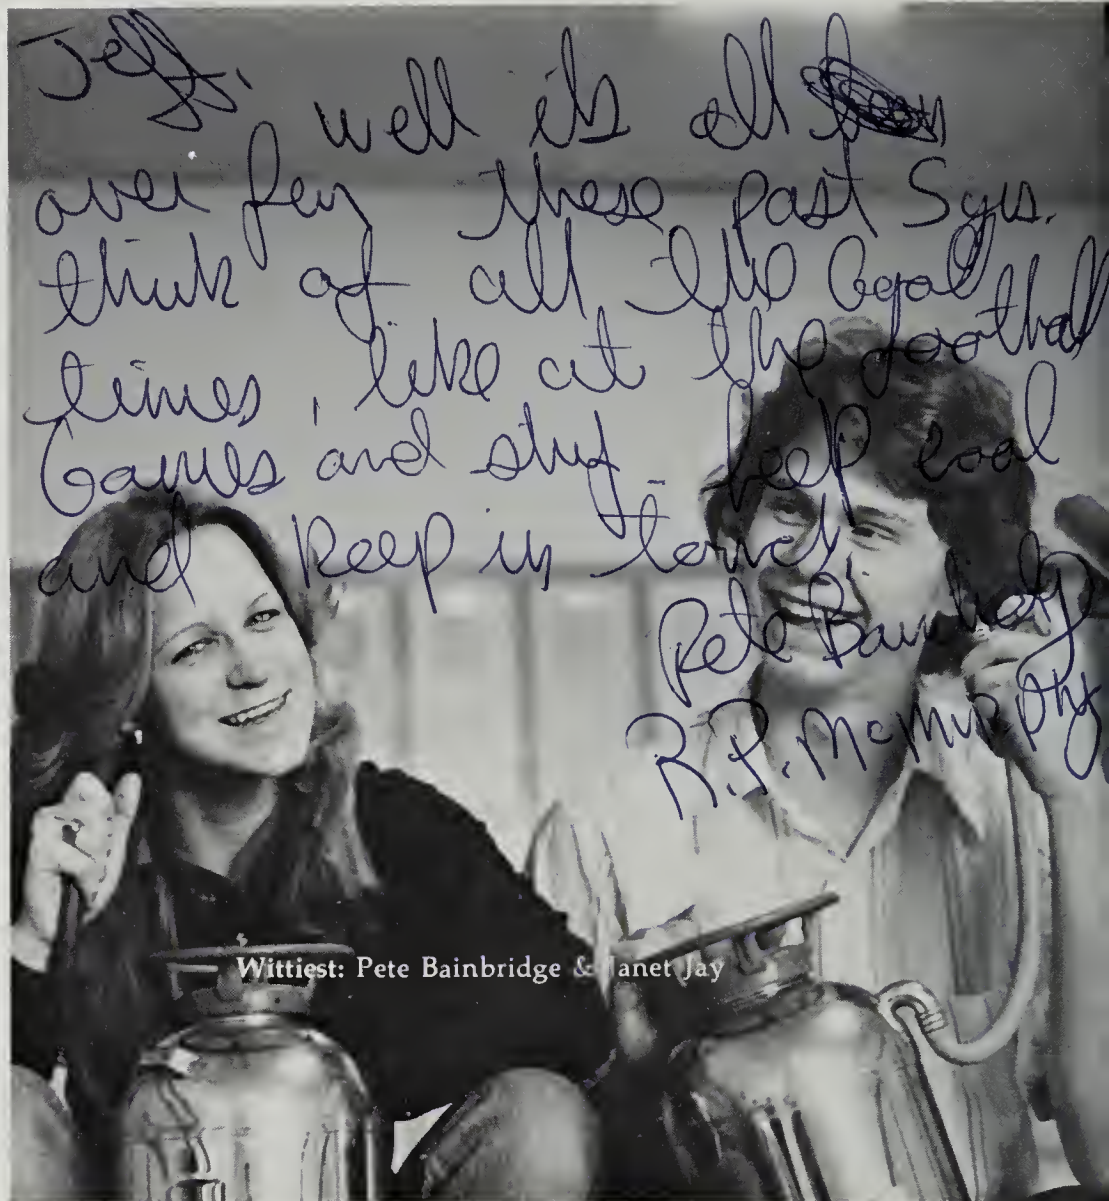 Jeff,
well it's all
over these past 5 yrs.
think of all the Good
times, like at the football
Games and stuf keep cool
and keep in touch.
Pete
R.P. McMurphy
Wittiest: Pete Bainbridge & Janet Jay